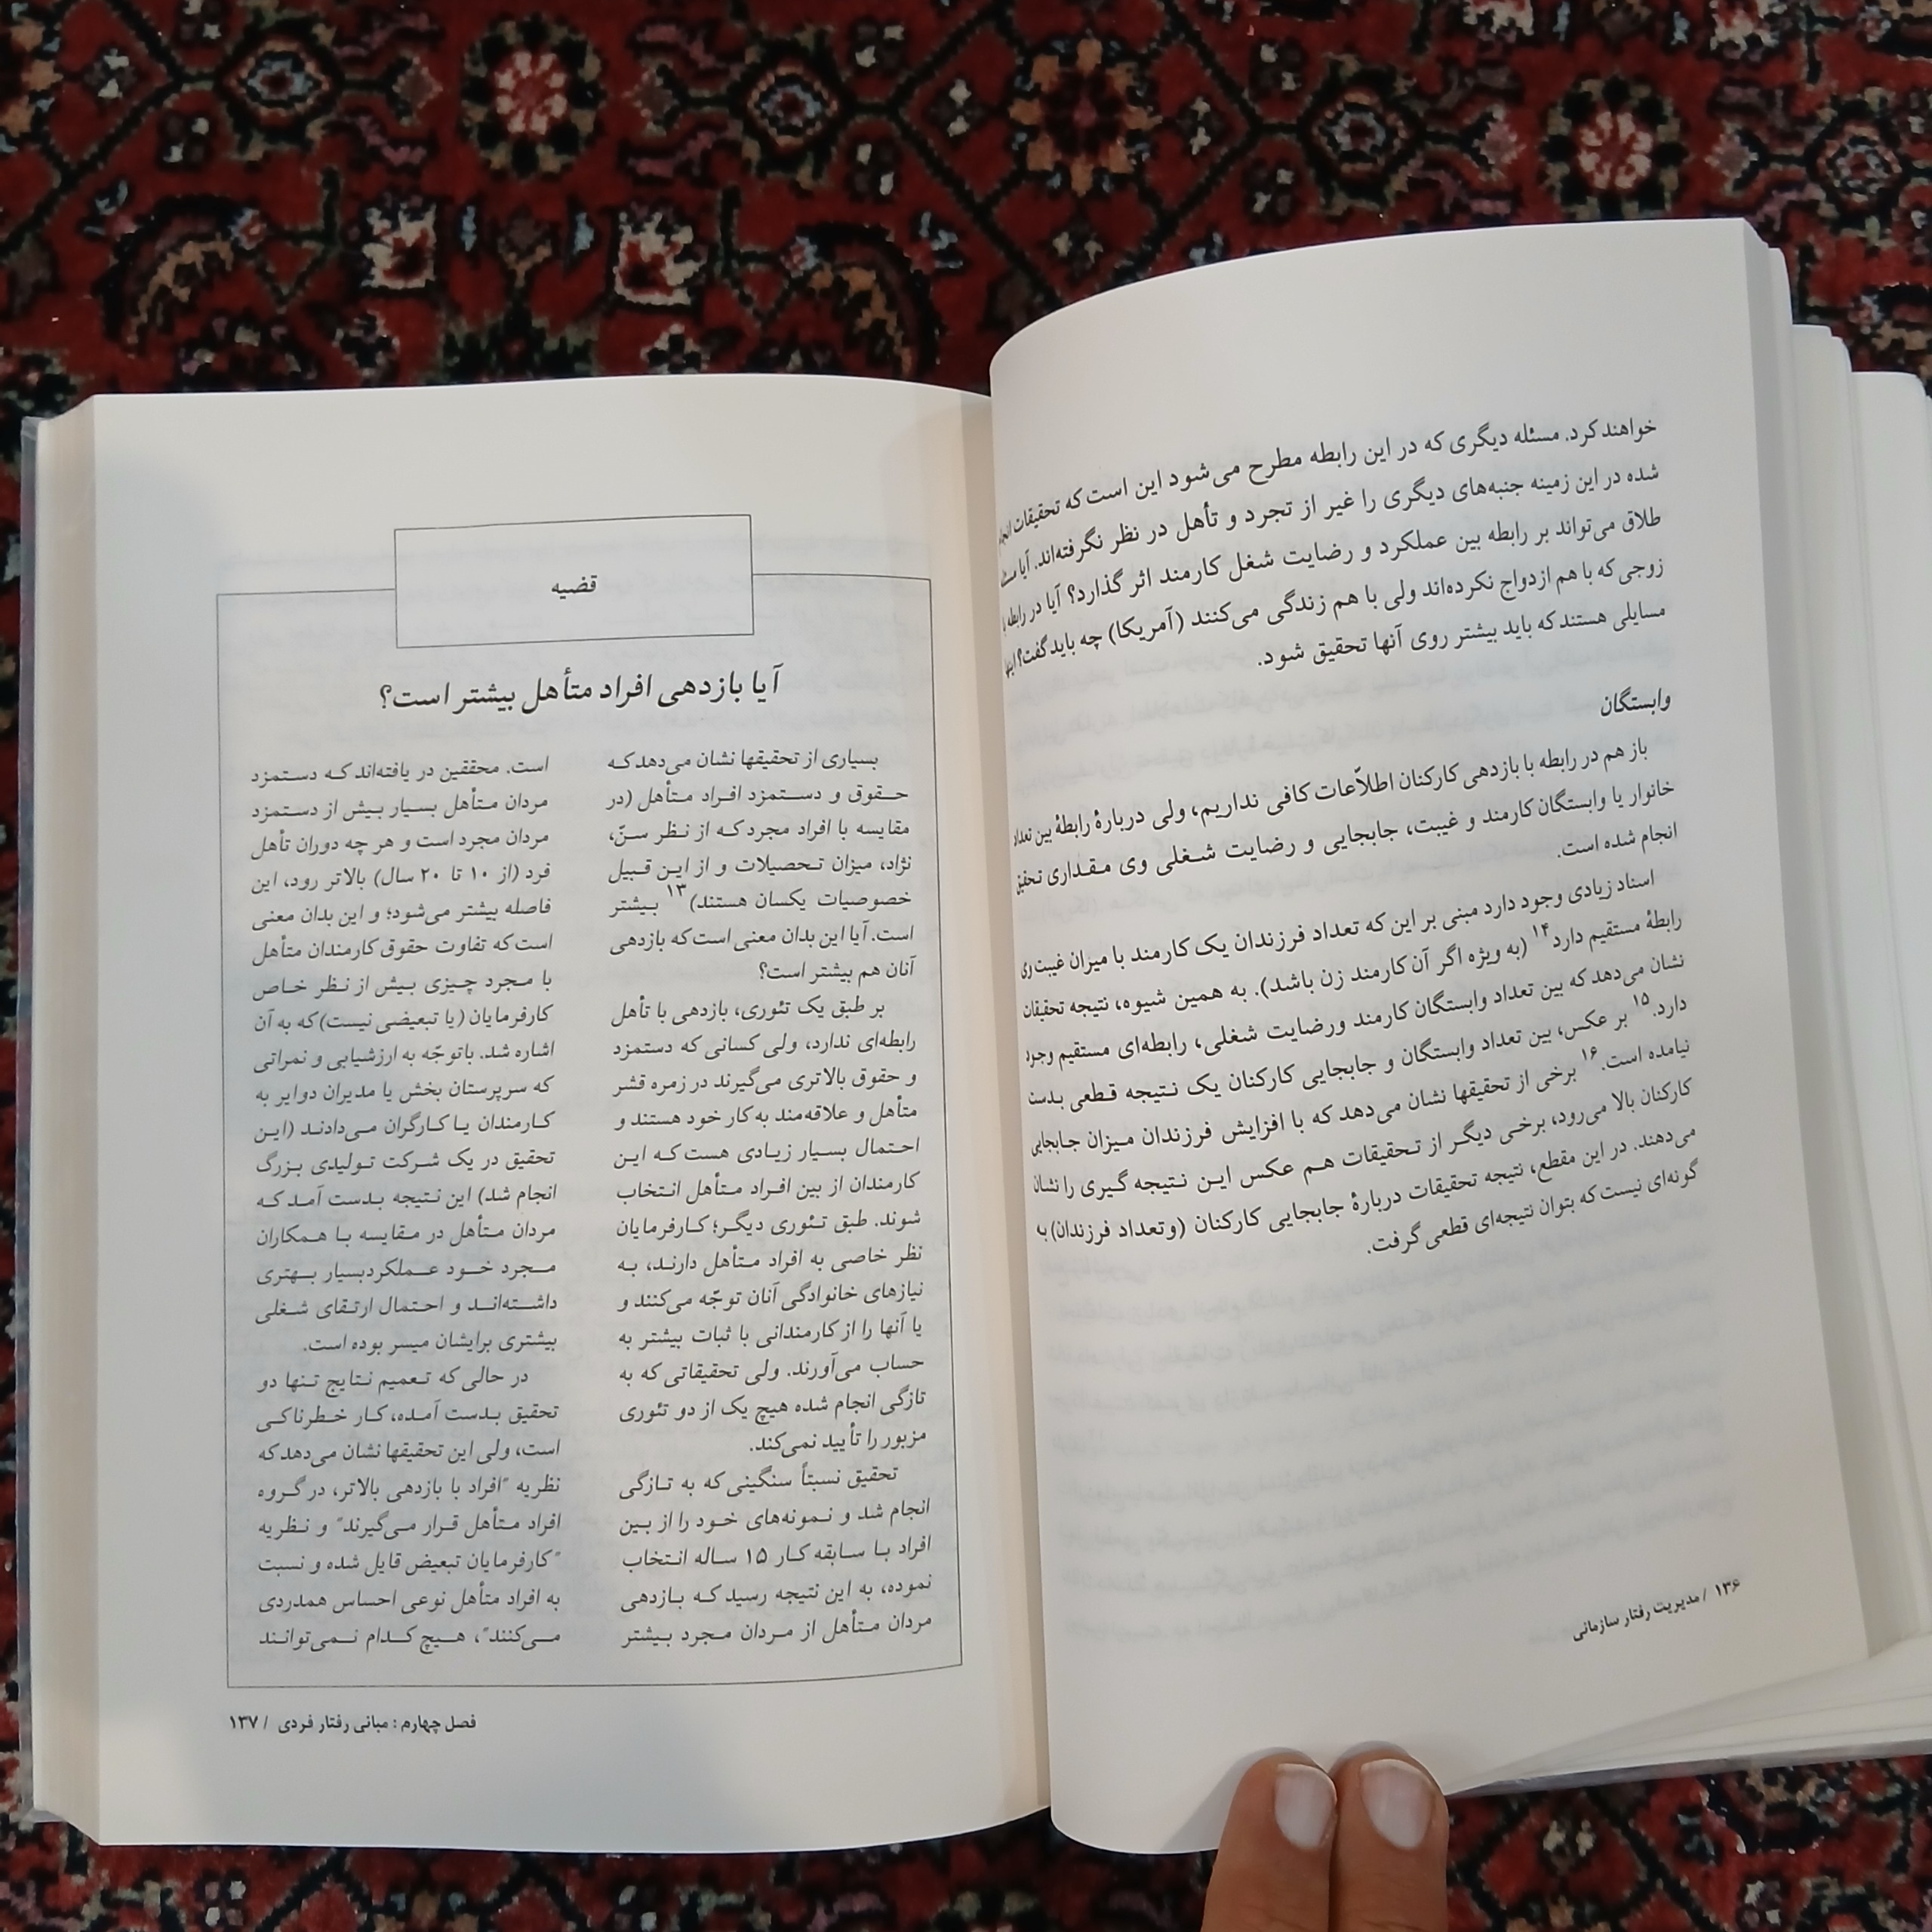 خواهند کرد. مسئله دیگری که در این رابطه مطرح می‌شود این است که تحقیقات انجام
شده در این زمینه جنبه‌های دیگری را غیر از تجرد و تأهل در نظر نگرفته‌اند. آیا
طلاق می‌تواند بر رابطه بین عملکرد و رضایت شغل کارمند اثر گذارد؟ آیا در رابطه با
زوجی که با هم ازدواج نکرده‌اند ولی با هم زندگی می‌کنند (آمریکا) چه باید گفت؟ اینها
مسایلی هستند که باید بیشتر روی آنها تحقیق شود.
وابستگان
باز هم در رابطه با بازدهی کارکنان اطلاّعات کافی نداریم، ولی دربارهٔ رابطهٔ بین تعداد
خانوار یا وابستگان کارمند و غیبت، جابجایی و رضایت شغلی وی مقداری تحقیق
انجام شده است.
اسناد زیادی وجود دارد مبنی بر این که تعداد فرزندان یک کارمند با میزان غیبت وی
رابطهٔ مستقیم دارد۱۴ (به ویژه اگر آن کارمند زن باشد). به همین شیوه، نتیجه تحقیقات
نشان می‌دهد که بین تعداد وابستگان کارمند ورضایت شغلی، رابطه‌ای مستقیم وجود
دارد.۱۵ بر عکس، بین تعداد وابستگان و جابجایی کارکنان یک نتیجه قطعی بدست
نیامده است.۱۶ برخی از تحقیقها نشان می‌دهد که با افزایش فرزندان میزان جابجایی
کارکنان بالا می‌رود، برخی دیگر از تحقیقات هم عکس این نتیجه گیری را نشان
می‌دهند. در این مقطع، نتیجه تحقیقات دربارهٔ جابجایی کارکنان (وتعداد فرزندان) به
گونه‌ای نیست که بتوان نتیجه‌ای قطعی گرفت.
۱۳۶ / مدیریت رفتار سازمانی
قضیه
آیا بازدهی افراد متأهل بیشتر است؟
بسیاری از تحقیقها نشان می‌دهد که
حقوق و دستمزد افراد متأهل (در
مقایسه با افراد مجرد که از نظر سنّ،
نژاد، میزان تحصیلات و از این قبیل
خصوصیات یکسان هستند)۱۳ بیشتر
است. آیا این بدان معنی است که بازدهی
آنان هم بیشتر است؟
بر طبق یک تئوری، بازدهی با تأهل
رابطه‌ای ندارد، ولی کسانی که دستمزد
و حقوق بالاتری می‌گیرند در زمره قشر
متأهل و علاقه‌مند به کار خود هستند و
احتمال بسیار زیادی هست که این
کارمندان از بین افراد متأهل انتخاب
شوند. طبق تئوری دیگر؛ کارفرمایان
نظر خاصی به افراد متأهل دارند، به
نیازهای خانوادگی آنان توجّه می‌کنند و
یا آنها را از کارمندانی با ثبات بیشتر به
حساب می‌آورند. ولی تحقیقاتی که به
تازگی انجام شده هیچ یک از دو تئوری
مزبور را تأیید نمی‌کند.
تحقیق نسبتاً سنگینی که به تازگی
انجام شد و نمونه‌های خود را از بین
افراد با سابقه کار ۱۵ ساله انتخاب
نموده، به این نتیجه رسید که بازدهی
مردان متأهل از مردان مجرد بیشتر
است. محققین در یافته‌اند که دستمزد
مردان متأهل بسیار بیش از دستمزد
مردان مجرد است و هر چه دوران تأهل
فرد (از ۱۰ تا ۲۰ سال) بالاتر رود، این
فاصله بیشتر می‌شود؛ و این بدان معنی
است که تفاوت حقوق کارمندان متأهل
با مجرد چیزی بیش از نظر خاص
کارفرمایان (یا تبعیضی نیست) که به آن
اشاره شد. باتوجّه به ارزشیابی و نمراتی
که سرپرستان بخش یا مدیران دوایر به
کارمندان یا کارگران می‌دادند (این
تحقیق در یک شرکت تولیدی بزرگ
انجام شد) این نتیجه بدست آمد که
مردان متأهل در مقایسه با همکاران
مجرد خود عملکردبسیار بهتری
داشته‌اند و احتمال ارتقای شغلی
بیشتری برایشان میسر بوده است.
در حالی که تعمیم نتایج تنها دو
تحقیق بدست آمده، کار خطرناکی
است، ولی این تحقیقها نشان می‌دهد که
نظریه "افراد با بازدهی بالاتر، در گروه
افراد متأهل قرار می‌گیرند" و نظریه
"کارفرمایان تبعیض قایل شده و نسبت
به افراد متأهل نوعی احساس همدردی
می‌کنند"، هیچ کدام نمی‌توانند
فصل چهارم : مبانی رفتار فردی / ۱۳۷